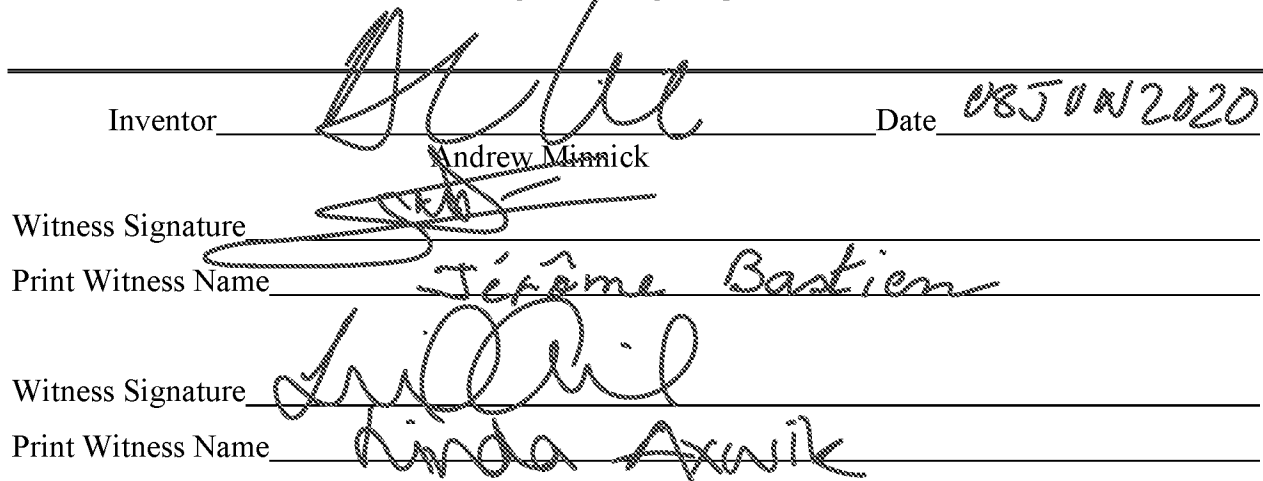 Inventor Date 08JUN2020
Andrew Minnick
Witness Signature
Print Witness Name Jérôme Bastien
Witness Signature
Print Witness Name Linda Axwik